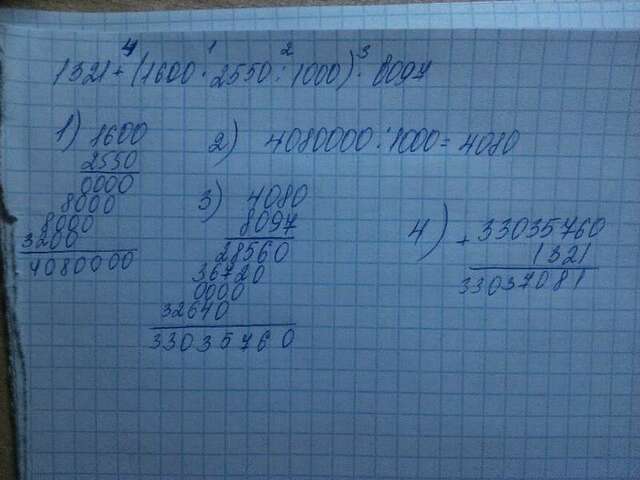 4 1 2 3
1321+(1600·2550:1000)·8097
1) 1600
2550
0000
8000
8000
3200
4080000
2) 4080000:1000=4080
3) 4080
8097
28560
36720
0000
32640
33035760
4) + 33035760
1321
33037081